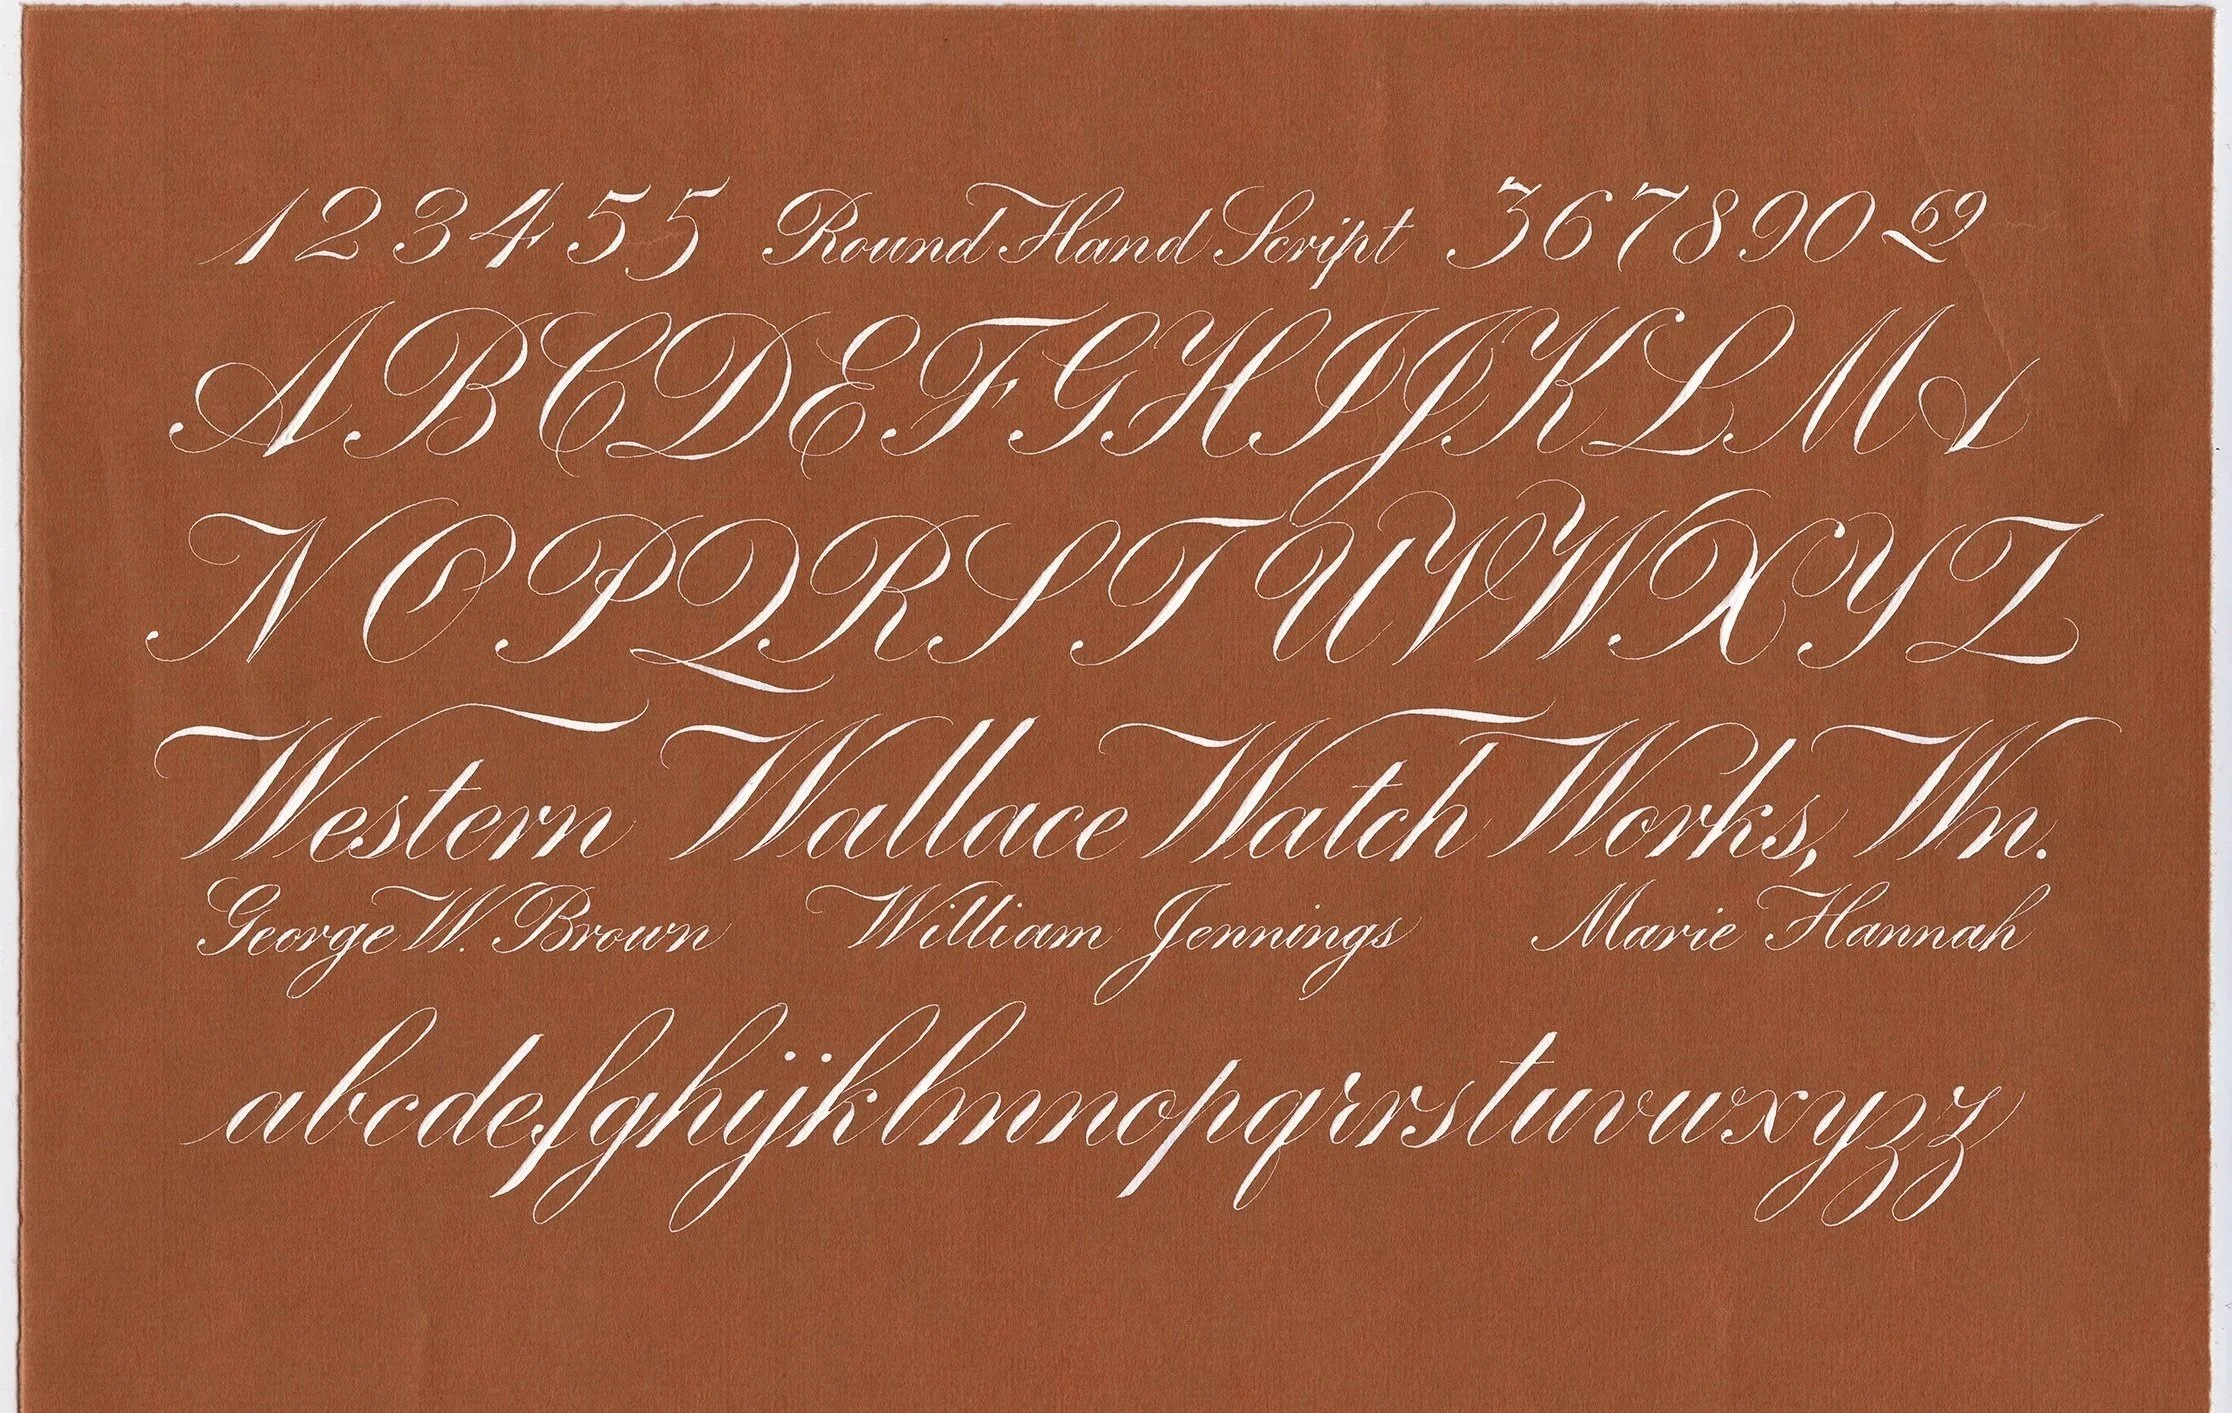 1 2 3 4 5 5 Round Hand Script 3 6 7 8 9 0 & 
A B C D E F G H I J K L M &
N O P Q R S T U V W X Y Z
Western Wallace Watch Works, Wn.
George W. Brown William Jennings Marie Hannah
abcdefghijklmnopqrrstuvwxyzz